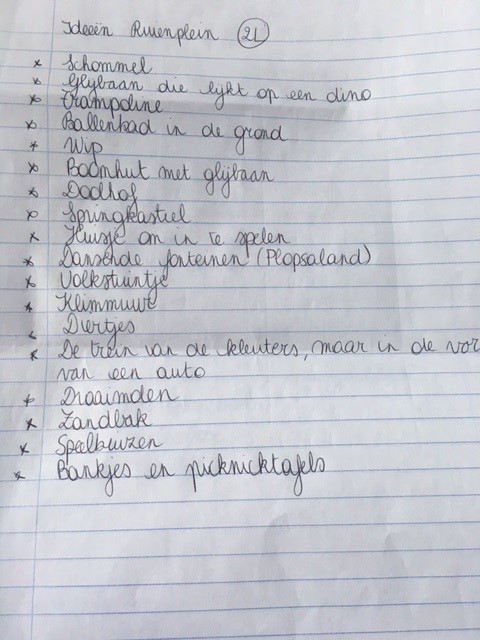 Ideeën Ruienplein 21
* Schommel
* Glijbaan die lijkt op een dino
* Trampoline
* Ballenbad in de grond
* Wip
* Boomhut met glijbaan
* Doolhof
* Springkastiel
* Huisje om in te spelen
* Dansende fonteinen (Plopsaland)
* Volkstuintje
* Klimmuur
* Diertjes
* De trein van de kleuters, maar in de vor
van een auto
* Draaimolen
* Zandbak
* Speelbuizen
* Bankjes en picknicktafels